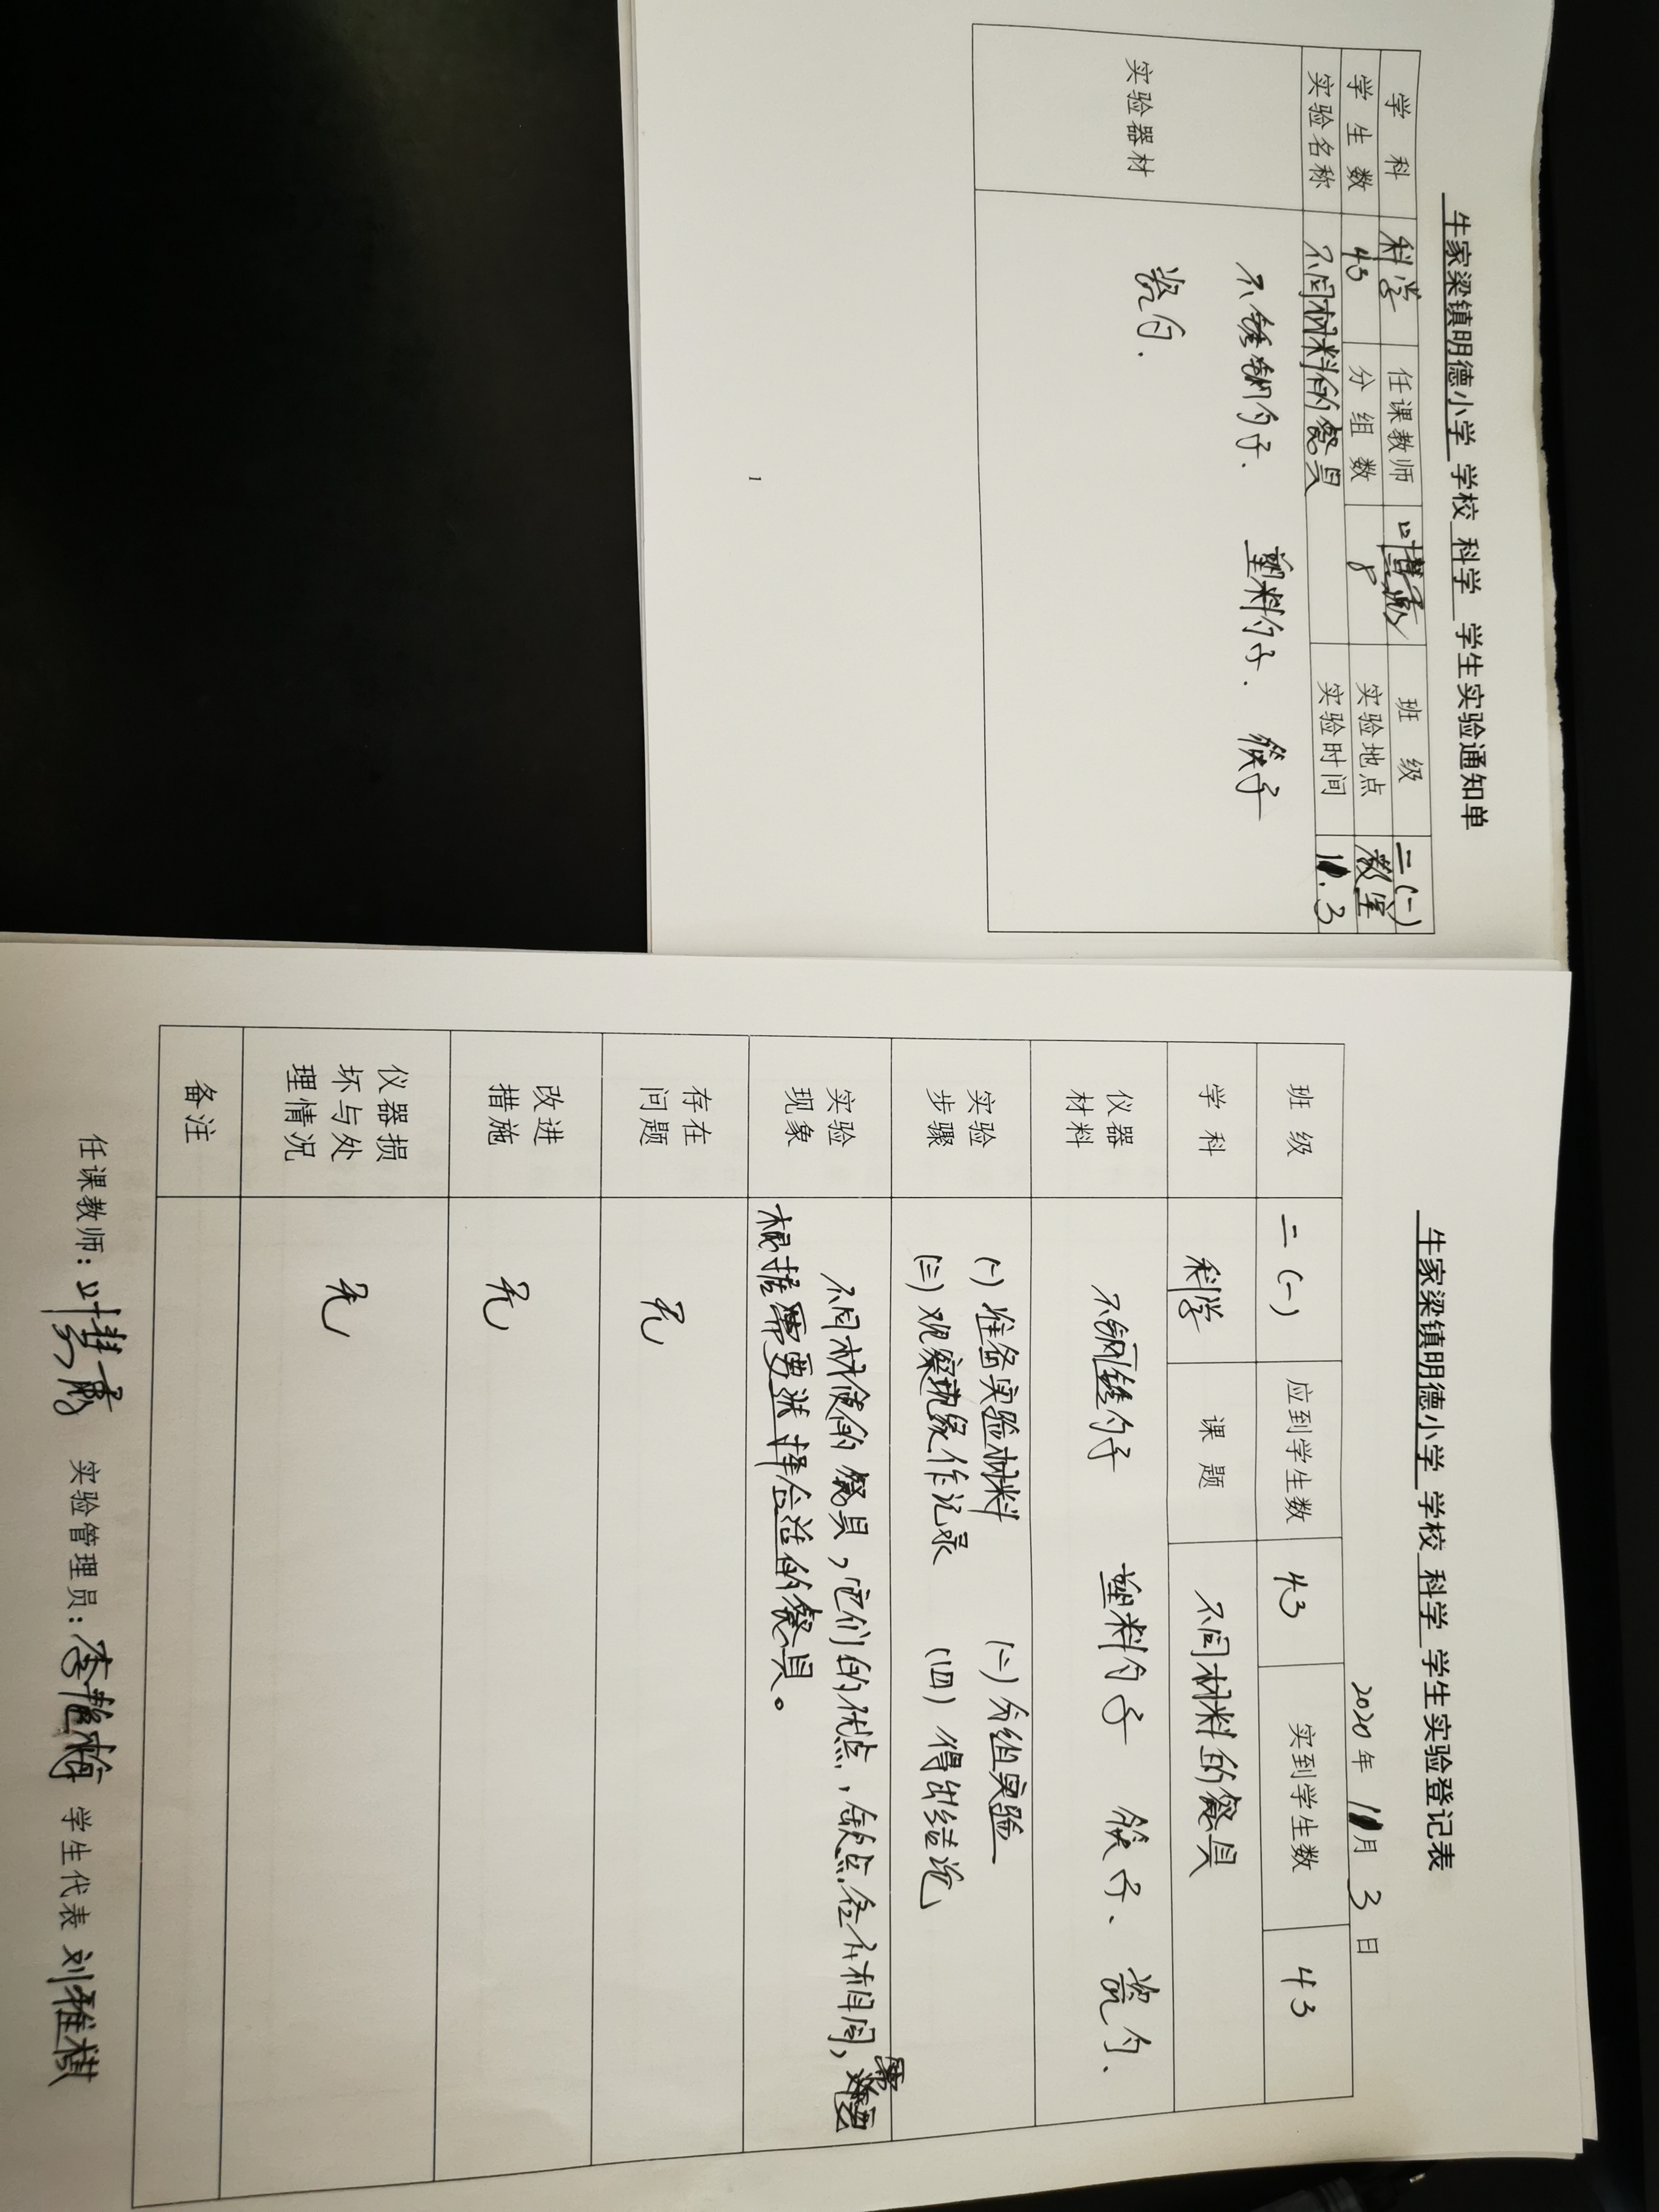 牛家梁镇明德小学 学校 科学 学生实验通知单
学 科 科学 任课教师 班 级 二(一)
学 生 数 43 分 组 数 8 实验地点 教室
实验名称 不同材料的餐具 实验时间 11.3
实验器材 不锈钢勺子、 塑料勺子、 筷子
瓷勺.
1
牛家梁镇明德小学 学校 科学 学生实验登记表
2020年 11月 3 日
班 级 二(一) 应到学生数 43 实到学生数 43
学 科 科学 课 题 不同材料的餐具
仪器材料 不钢锈勺子 塑料勺子 筷子、瓷勺、
实验步骤 (一)准备实验材料 (二)分组实验
(三)观察现象作记录 (四)得出结论
实验现象 不同材使的餐具,它们的优点,缺点各不相同,
根据需要选择合适的餐具。
存在问题 无
改进措施 无
仪器损坏与处理情况 无
备注
任课教师: 实验管理员: 李艳梅 学生代表 刘雅棋